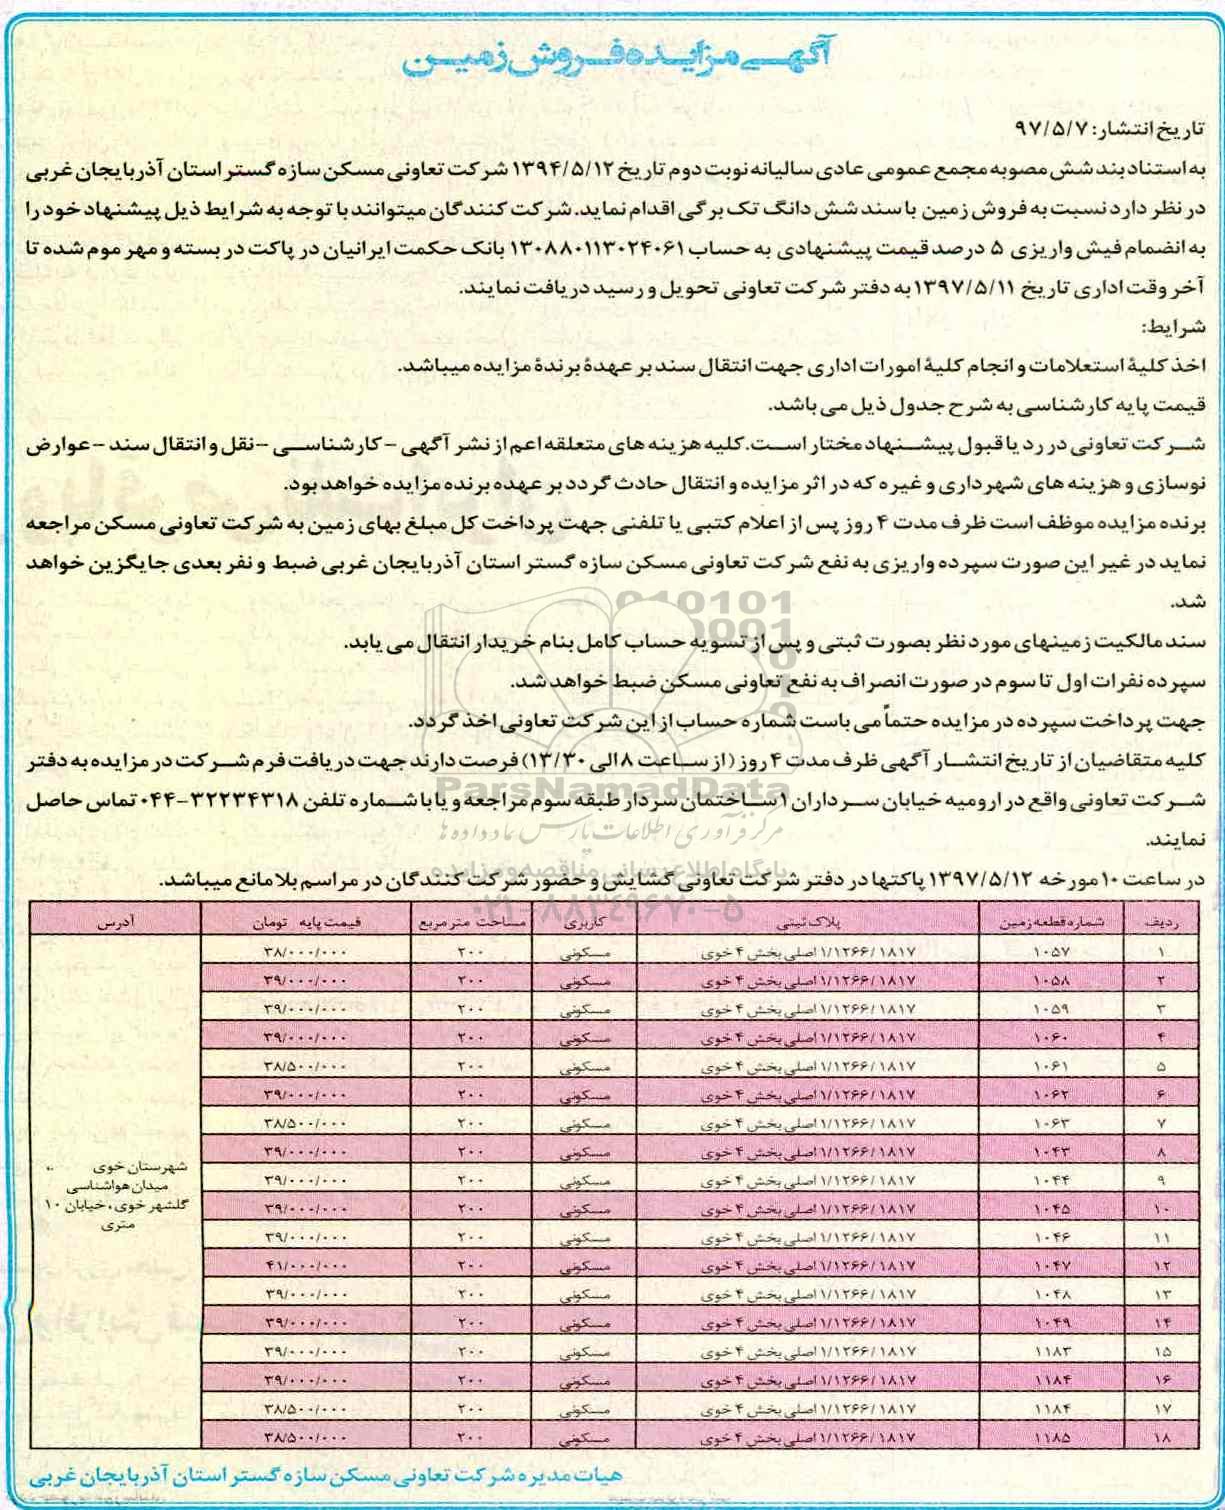 آگهی مزایده فروش زمین
تاریخ انتشار: ۹۷/۵/۷
به استناد بند شش مصوبه مجمع عمومی عادی سالیانه نوبت دوم تاریخ ۱۳۹۴/۵/۱۲ شرکت تعاونی مسکن سازه گستر استان آذربایجان غربی
در نظر دارد نسبت به فروش زمین با سند شش دانگ تک برگی اقدام نماید. شرکت کنندگان میتوانند با توجه به شرایط ذیل پیشنهاد خود را
به انضمام فیش واریزی ۵ درصد قیمت پیشنهادی به حساب ۱۳۰۸۸۰۱۱۳۰۲۴۰۶۱ بانک حکمت ایرانیان در پاکت در بسته و مهر موم شده تا
آخر وقت اداری تاریخ ۱۳۹۷/۵/۱۱ به دفتر شرکت تعاونی تحویل و رسید دریافت نمایند.
شرایط:
اخذ کلیهٔ استعلامات و انجام کلیهٔ امورات اداری جهت انتقال سند بر عهدهٔ برندهٔ مزایده میباشد.
قیمت پایه کارشناسی به شرح جدول ذیل می باشد.
شرکت تعاونی در رد یا قبول پیشنهاد مختار است. کلیه هزینه های متعلقه اعم از نشر آگهی - کارشناسی - نقل و انتقال سند - عوارض
نوسازی و هزینه های شهرداری و غیره که در اثر مزایده و انتقال حادث گردد بر عهده برنده مزایده خواهد بود.
برنده مزایده موظف است ظرف مدت ۴ روز پس از اعلام کتبی یا تلفنی جهت پرداخت کل مبلغ بهای زمین به شرکت تعاونی مسکن مراجعه
نماید در غیر این صورت سپرده واریزی به نفع شرکت تعاونی مسکن سازه گستر استان آذربایجان غربی ضبط و نفر بعدی جایگزین خواهد
شد.
سند مالکیت زمینهای مورد نظر بصورت ثبتی و پس از تسویه حساب کامل بنام خریدار انتقال می یابد.
سپرده نفرات اول تا سوم در صورت انصراف به نفع تعاونی مسکن ضبط خواهد شد.
جهت پرداخت سپرده در مزایده حتماً می باست شماره حساب از این شرکت تعاونی اخذ گردد.
کلیه متقاضیان از تاریخ انتشار آگهی ظرف مدت ۴ روز (از ساعت ۸ الی ۱۳/۳۰) فرصت دارند جهت دریافت فرم شرکت در مزایده به دفتر
شرکت تعاونی واقع در ارومیه خیابان سرداران ۱ ساختمان سردار طبقه سوم مراجعه و یا با شماره تلفن ۳۲۲۳۴۳۱۸-۰۴۴ تماس حاصل
نمایند.
در ساعت ۱۰ مورخه ۱۳۹۷/۵/۱۲ پاکتها در دفتر شرکت تعاونی گشایش و حضور شرکت کنندگان در مراسم بلامانع میباشد.
ParsNamadData
مرکز فرآوری اطلاعات پارس نماد داده ها
پایگاه اطلاع رسانی مناقصه و مزایده
۰۲۱-۸۸۳۴۹۶۷۰-۵
ردیف شماره قطعه زمین پلاک ثبتی کاربری مساحت متر مربع قیمت پایه تومان آدرس
۱ ۱۰۵۷ ۱/۱۲۶۶/۱۸۱۷ اصلی بخش ۴ خوی مسکونی ۲۰۰ ۳۸/۰۰۰/۰۰۰
۲ ۱۰۵۸ ۱/۱۲۶۶/۱۸۱۷ اصلی بخش ۴ خوی مسکونی ۲۰۰ ۳۹/۰۰۰/۰۰۰
۳ ۱۰۵۹ ۱/۱۲۶۶/۱۸۱۷ اصلی بخش ۴ خوی مسکونی ۲۰۰ ۳۹/۰۰۰/۰۰۰
۴ ۱۰۶۰ ۱/۱۲۶۶/۱۸۱۷ اصلی بخش ۴ خوی مسکونی ۲۰۰ ۳۹/۰۰۰/۰۰۰
۵ ۱۰۶۱ ۱/۱۲۶۶/۱۸۱۷ اصلی بخش ۴ خوی مسکونی ۲۰۰ ۳۸/۵۰۰/۰۰۰
۶ ۱۰۶۲ ۱/۱۲۶۶/۱۸۱۷ اصلی بخش ۴ خوی مسکونی ۲۰۰ ۳۹/۰۰۰/۰۰۰
۷ ۱۰۶۳ ۱/۱۲۶۶/۱۸۱۷ اصلی بخش ۴ خوی مسکونی ۲۰۰ ۳۸/۵۰۰/۰۰۰
۸ ۱۰۴۳ ۱/۱۲۶۶/۱۸۱۷ اصلی بخش ۴ خوی مسکونی ۲۰۰ ۳۹/۰۰۰/۰۰۰
۹ ۱۰۴۴ ۱/۱۲۶۶/۱۸۱۷ اصلی بخش ۴ خوی مسکونی ۲۰۰ ۳۹/۰۰۰/۰۰۰
۱۰ ۱۰۴۵ ۱/۱۲۶۶/۱۸۱۷ اصلی بخش ۴ خوی مسکونی ۲۰۰ ۳۹/۰۰۰/۰۰۰
۱۱ ۱۰۴۶ ۱/۱۲۶۶/۱۸۱۷ اصلی بخش ۴ خوی مسکونی ۲۰۰ ۳۹/۰۰۰/۰۰۰
۱۲ ۱۰۴۷ ۱/۱۲۶۶/۱۸۱۷ اصلی بخش ۴ خوی مسکونی ۲۰۰ ۴۱/۰۰۰/۰۰۰
۱۳ ۱۰۴۸ ۱/۱۲۶۶/۱۸۱۷ اصلی بخش ۴ خوی مسکونی ۲۰۰ ۳۹/۰۰۰/۰۰۰
۱۴ ۱۰۴۹ ۱/۱۲۶۶/۱۸۱۷ اصلی بخش ۴ خوی مسکونی ۲۰۰ ۳۹/۰۰۰/۰۰۰
۱۵ ۱۱۸۳ ۱/۱۲۶۶/۱۸۱۷ اصلی بخش ۴ خوی مسکونی ۲۰۰ ۳۹/۰۰۰/۰۰۰
۱۶ ۱۱۸۴ ۱/۱۲۶۶/۱۸۱۷ اصلی بخش ۴ خوی مسکونی ۲۰۰ ۳۹/۰۰۰/۰۰۰
۱۷ ۱۱۸۴ ۱/۱۲۶۶/۱۸۱۷ اصلی بخش ۴ خوی مسکونی ۲۰۰ ۳۸/۵۰۰/۰۰۰
۱۸ ۱۱۸۵ ۱/۱۲۶۶/۱۸۱۷ اصلی بخش ۴ خوی مسکونی ۲۰۰ ۳۸/۵۰۰/۰۰۰
شهرستان خوی
میدان هواشناسی
گلشهر خوی، خیابان ۱۰
متری
هیات مدیره شرکت تعاونی مسکن سازه گستر استان آذربایجان غربی